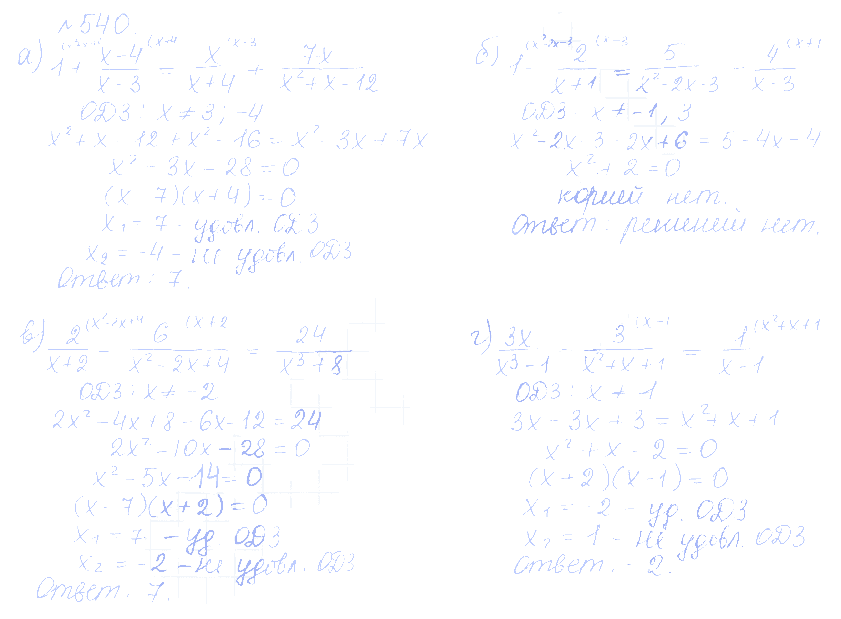 №540.
а) 1 + (x-4)/(x-3) = x/(x+4) + 7x/(x²+x-12)
ОДЗ: x ≠ 3; -4
x² + x 12 + x² - 16 = x² 3x + 7x
x² - 3x - 28 = 0
(x 7)(x+4) = 0
x₁ = 7 - удовл. ОДЗ
x₂ = -4 - не удовл ОДЗ
Ответ: 7.
б) 1 - 2/(x+1) = 5/(x²-2x-3) - 4/(x-3)
ОДЗ: x ≠ -1, 3
x² - 2x 3 - 2x + 6 = 5 - 4x - 4
x² + 2 = 0
корней нет.
Ответ: решений нет.
в) 2/(x+2) - 6/(x²-2x+4) = 24/(x³+8)
ОДЗ: x ≠ -2
2x² - 4x + 8 - 6x - 12 = 24
2x² - 10x - 28 = 0
x² - 5x - 14 = 0
(x - 7)(x+2) = 0
x₁ = 7 - уд ОДЗ
x₂ = -2 - не удовл. ОДЗ
Ответ: 7.
г) 3x/(x³-1) - 3/(x²+x+1) = 1/(x-1)
ОДЗ: x ≠ 1
3x - 3x + 3 = x² + x + 1
x² + x - 2 = 0
(x+2)(x-1) = 0
x₁ = -2 - уд. ОДЗ
x₂ = 1 - не удовл. ОДЗ
Ответ: -2.